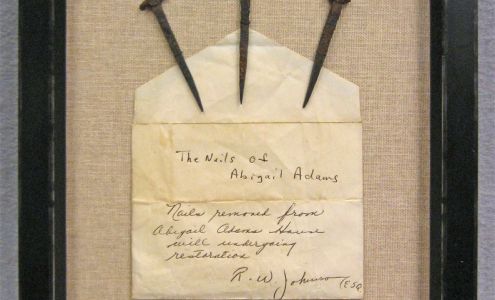 The Nails of
Abigail Adams
Nails removed from
Abigail Adams House
will undergoing
restoration
R. W. Johnson (ESQ